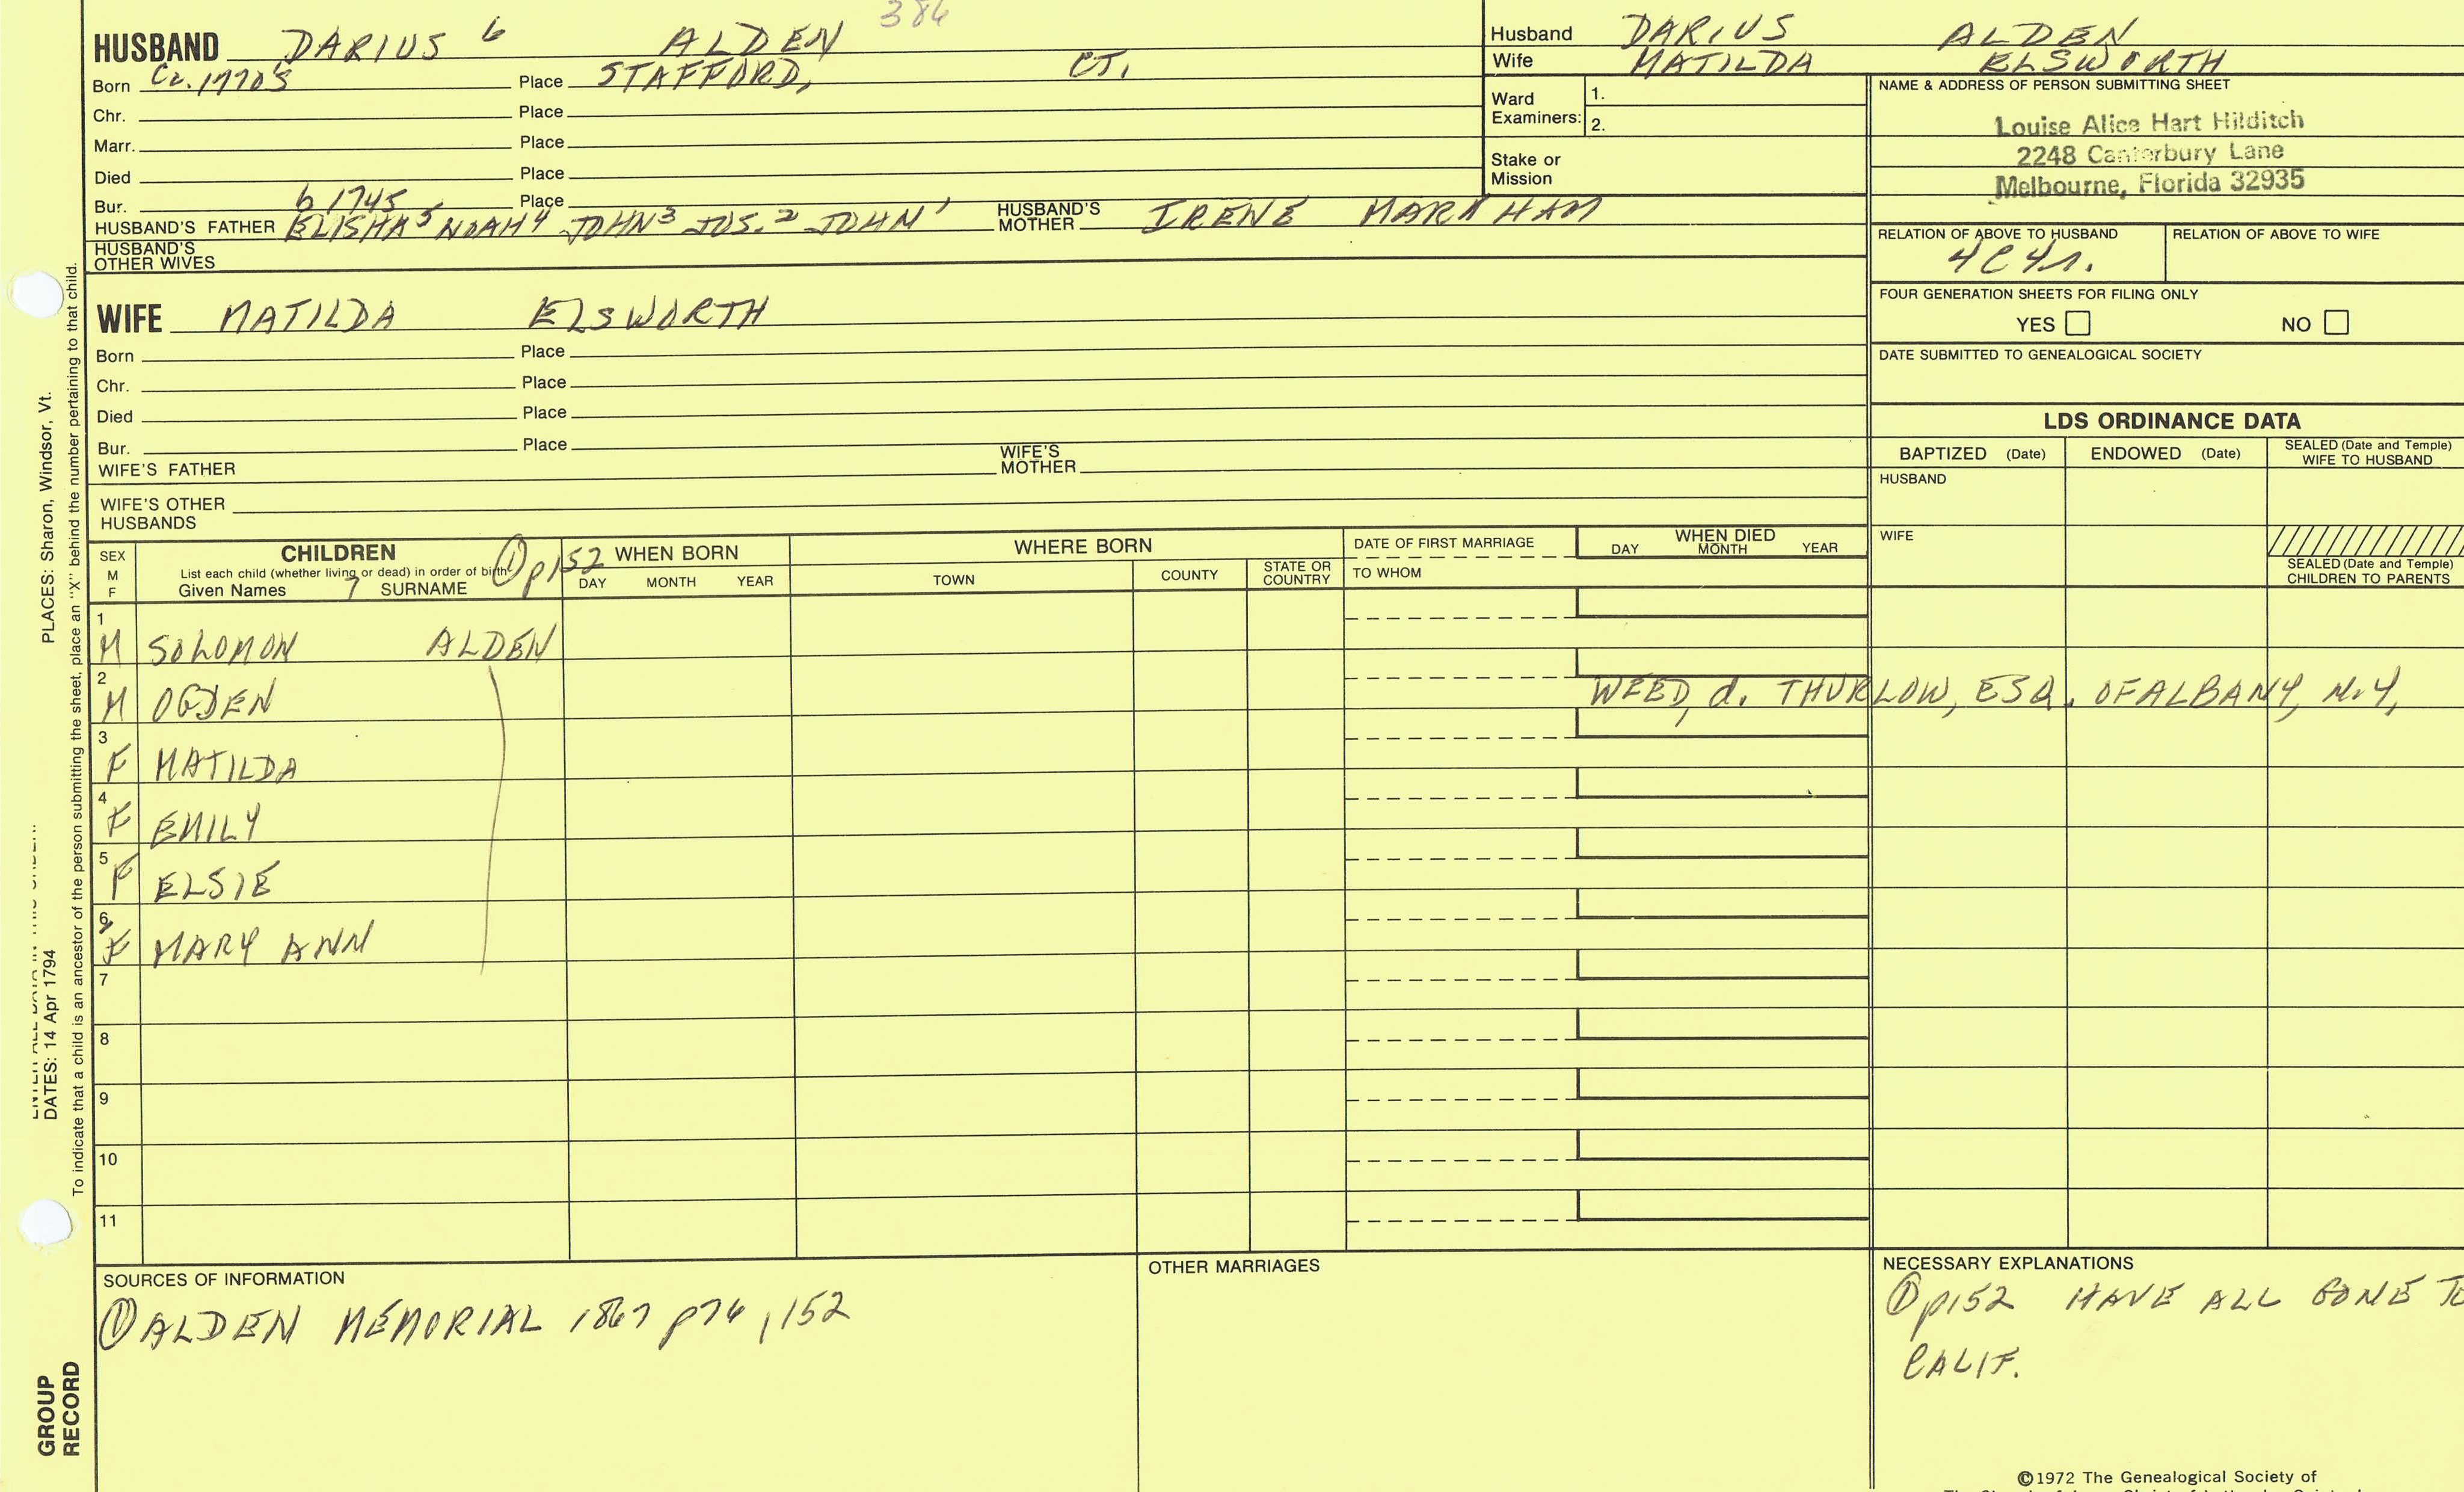 386
HUSBAND DARIUS 6 ALDEN
Born Ca. 1770'S Place STAFFORD, CT.
Chr. Place
Marr. Place
Died Place
Bur. Place
b 1745
HUSBAND'S FATHER ELISHA 5 NOAH 4 JOHN 3 JOS. 2 JOHN 1 HUSBAND'S MOTHER IRENE MARKHAM
HUSBAND'S OTHER WIVES
WIFE MATILDA ELSWORTH
Born Place
Chr. Place
Died Place
Bur. Place
WIFE'S FATHER WIFE'S MOTHER
WIFE'S OTHER HUSBANDS
Husband DARIUS ALDEN
Wife MATILDA ELSWORTH
Ward Examiners: 1.
2.
Stake or Mission
NAME & ADDRESS OF PERSON SUBMITTING SHEET
Louise Alice Hart Hilditch
2248 Canterbury Lane
Melbourne, Florida 32935
RELATION OF ABOVE TO HUSBAND RELATION OF ABOVE TO WIFE
4C4r.
FOUR GENERATION SHEETS FOR FILING ONLY
YES NO
DATE SUBMITTED TO GENEALOGICAL SOCIETY
LDS ORDINANCE DATA
BAPTIZED (Date) ENDOWED (Date) SEALED (Date and Temple) WIFE TO HUSBAND
HUSBAND
WIFE
SEALED (Date and Temple) CHILDREN TO PARENTS
SEX M F
CHILDREN
List each child (whether living or dead) in order of birth
Given Names 7 SURNAME
① p152
WHEN BORN
DAY MONTH YEAR
WHERE BORN
TOWN COUNTY STATE OR COUNTRY
DATE OF FIRST MARRIAGE
TO WHOM
WHEN DIED
DAY MONTH YEAR
1 M SOLOMON ALDEN
2 M OGDEN WEED, d. THURLOW, ESQ. OF ALBANY, N.Y.
3 F MATILDA
4 F EMILY
5 F ELSIE
6 F MARY ANN
7
8
9
10
11
SOURCES OF INFORMATION
① ALDEN MEMORIAL 1867 p76, 152
OTHER MARRIAGES
NECESSARY EXPLANATIONS
① p152 HAVE ALL GONE TO
CALIF.
©1972 The Genealogical Society of
PLACES: Sharon, Windsor, Vt.
DATES: 14 Apr 1794
To indicate that a child is an ancestor of the person submitting the sheet, place an "X" behind the number pertaining to that child.
GROUP
RECORD